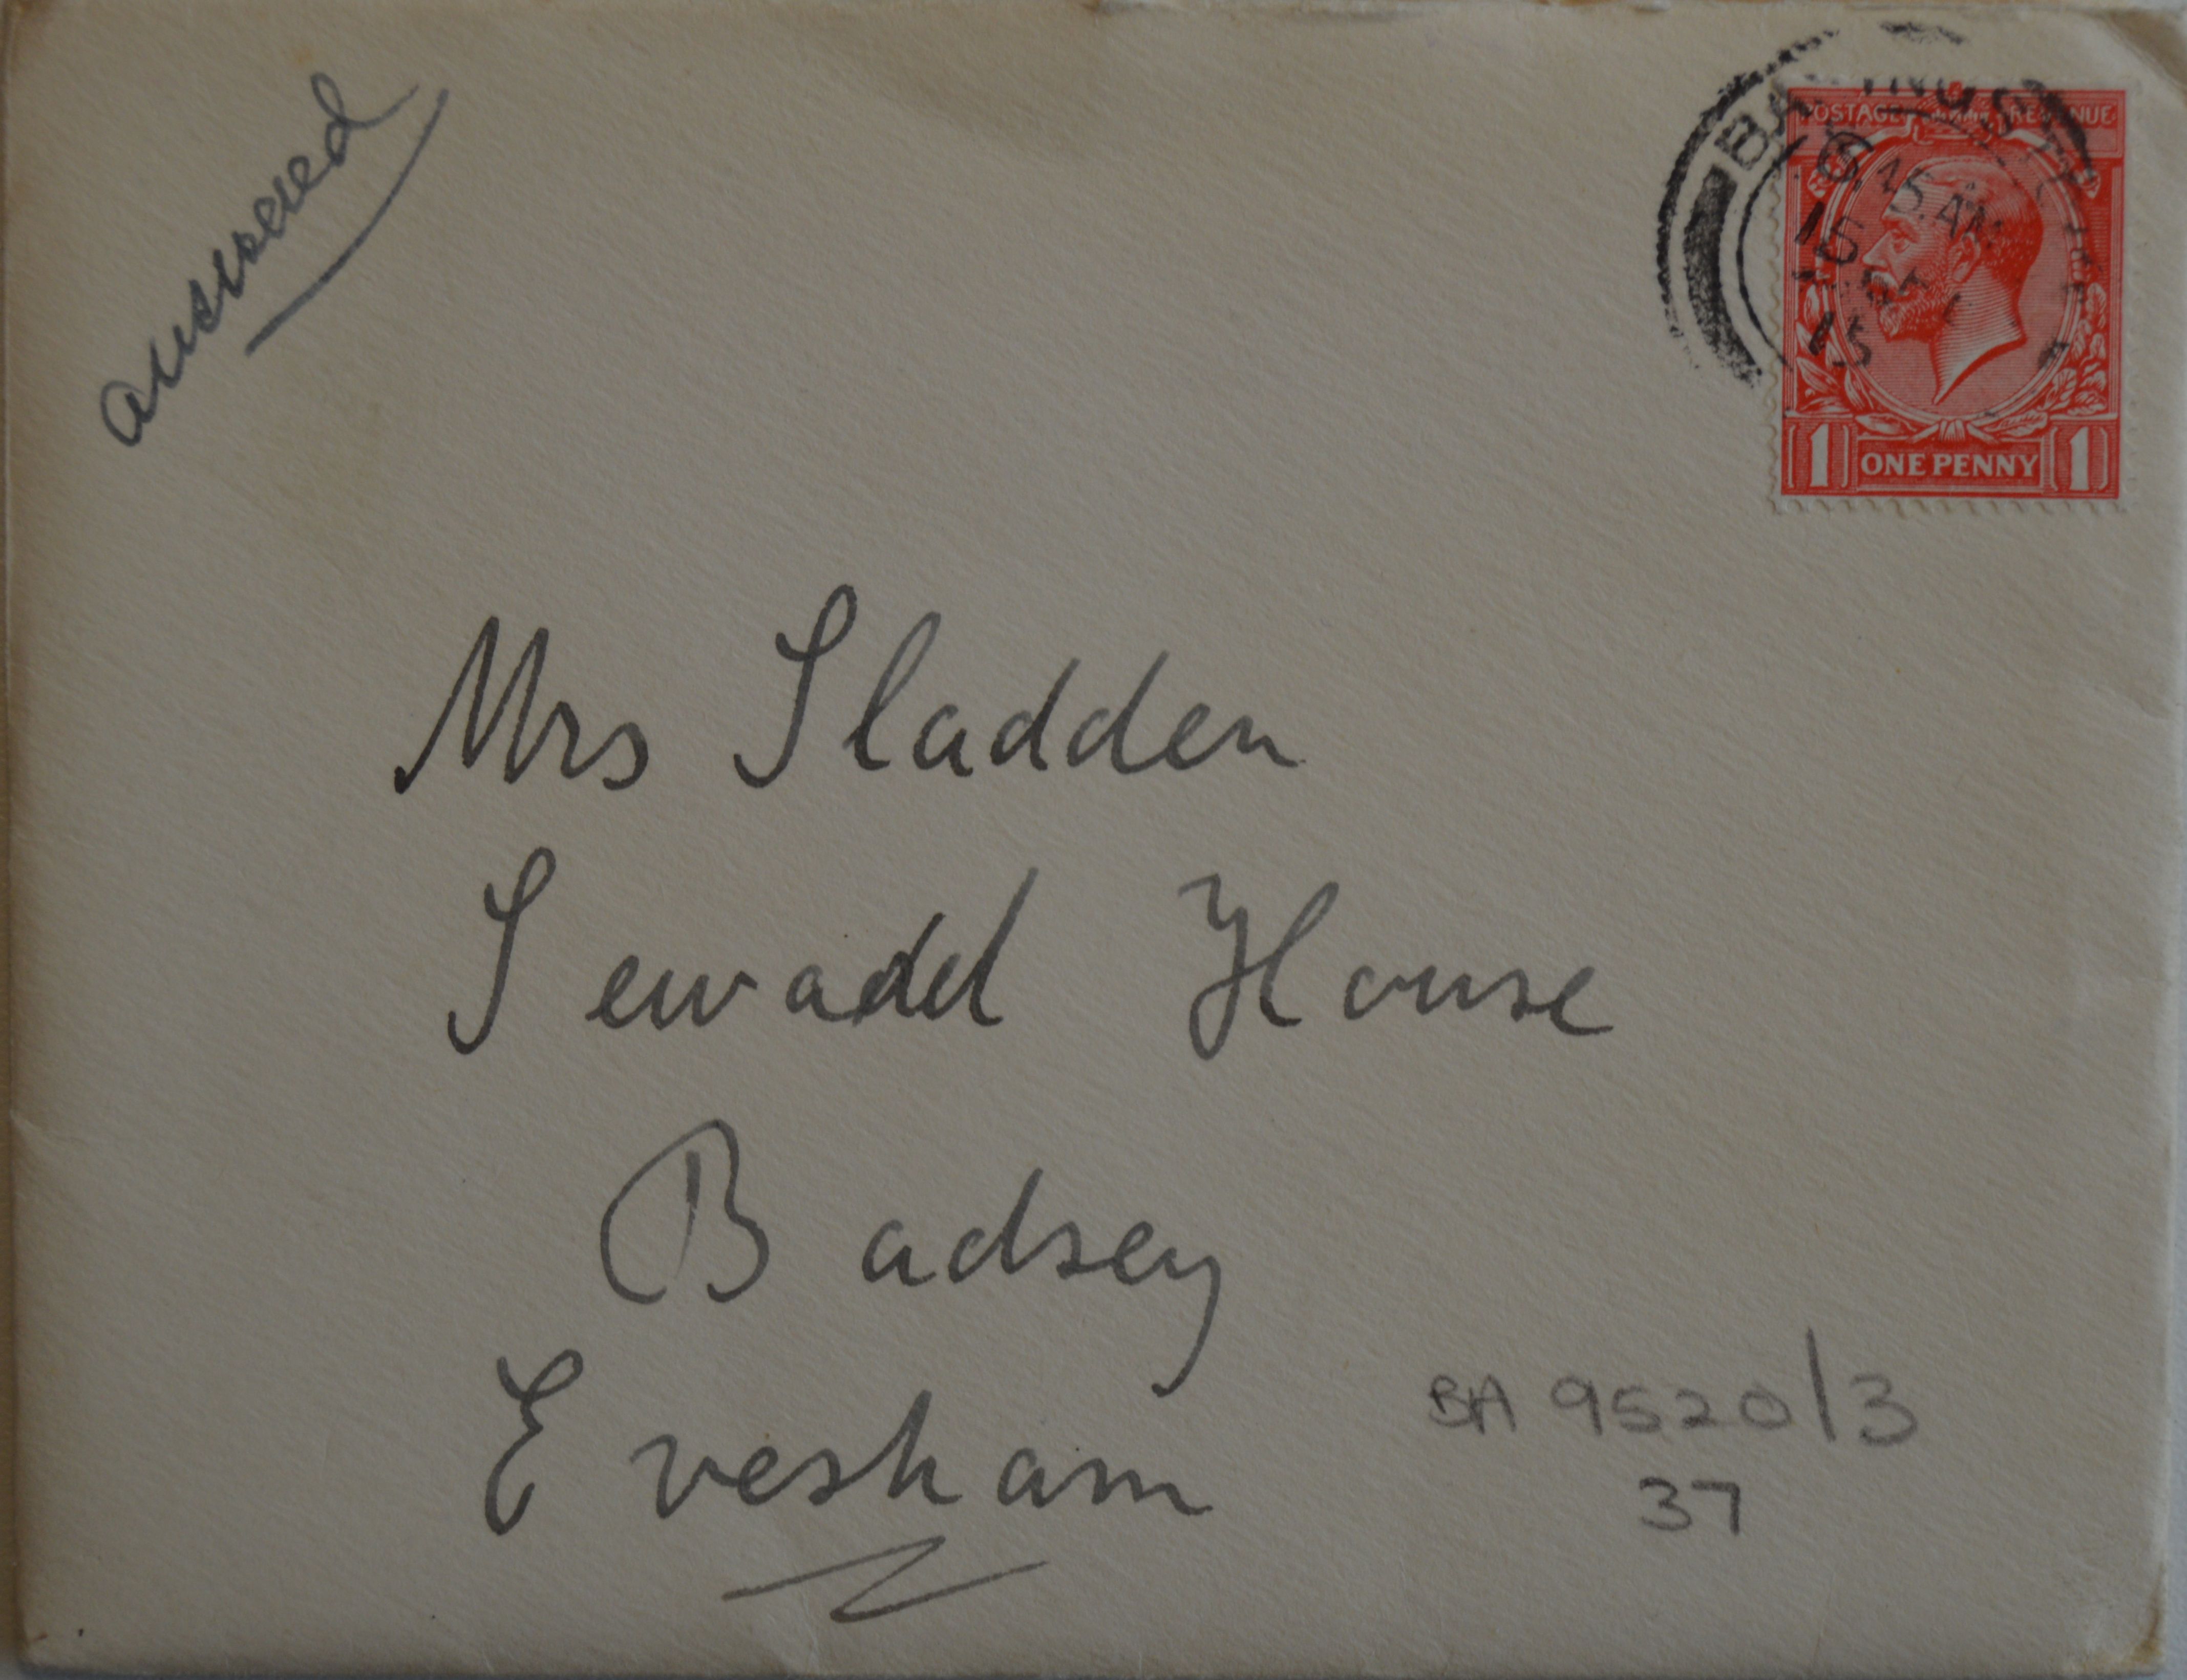 answered
POSTAGE REVENUE
15
ONE PENNY
1 1
Mrs Sladden
Sewadd House
Badsey
Evesham
BA 9520/3
37